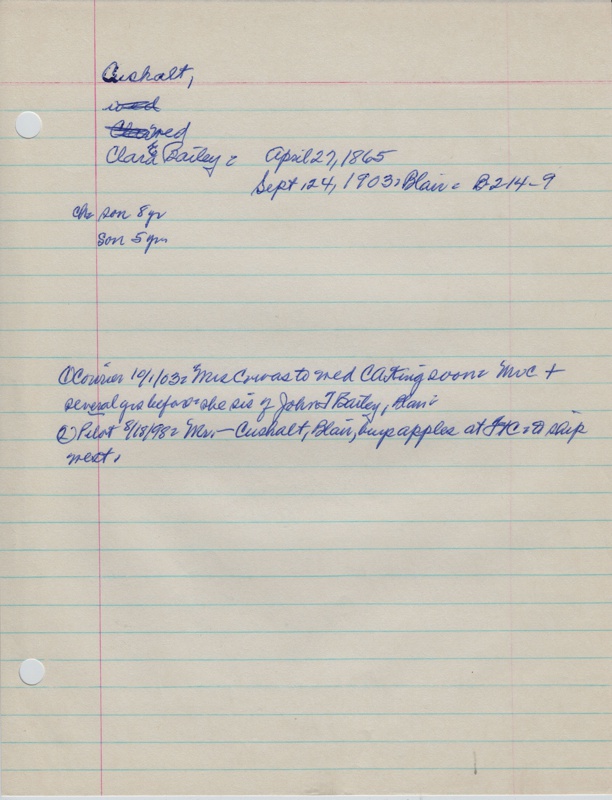 Cushalt,
med
Clara Bailey = April 27, 1865
Sept 24, 1903 = Blair = B214-9
ch = son 8 yr
son 5 yrs
① Courier 10/1/03 = "Mrs C was to wed CA King soon = Mr C +
several yrs before = she sis of John T Bailey, Blair =
② Pilot 8/18/98 = Mr. — Cushalt, Blair, buys apples at = to ship
west.